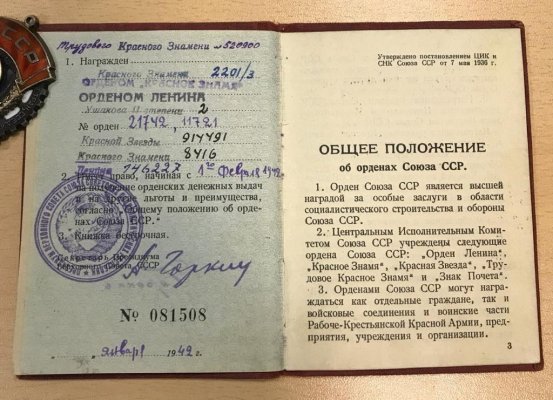 Трудового Красного Знамени № 520900
1. Награжден
Красного Знамени 2201/3
ОРДЕНОМ „КРАСНОЕ ЗНАМЯ“
ОРДЕНОМ ЛЕНИНА
Ушакова II степени 2
№ орден 21742, 11721
Красной Звезды 914491
Красного Знамени 8416
Ленина 146227
2. Имеет право, начиная с 1го февраля 1942
на получение орденских денежных выдач
и на другие льготы и преимущества,
согласно „Общему положению об орде-
нах Союза ССР.“
3. Книжка бессрочная.
Секретарь Президиума
Верховного Совета СССР
Горкин
№ 081508
„ “ января 1942 г.
Утверждено постановлением ЦИК и
СНК Союза ССР от 7 мая 1936 г.
ОБЩЕЕ ПОЛОЖЕНИЕ
об орденах Союза ССР.
1. Орден Союза ССР является высшей
наградой за особые заслуги в области
социалистического строительства и обороны
Союза ССР.
2. Центральным Исполнительным Коми-
тетом Союза ССР учреждены следующие
ордена Союза ССР: „Орден Ленина“,
„Красное Знамя“, „Красная Звезда“, „Тру-
довое Красное Знамя“ и „Знак Почета“.
3. Орденами Союза ССР могут награ-
ждаться как отдельные граждане, так и
войсковые соединения и воинские части
Рабоче-Крестьянской Красной Армии, пред-
приятия, учреждения и организации.
3